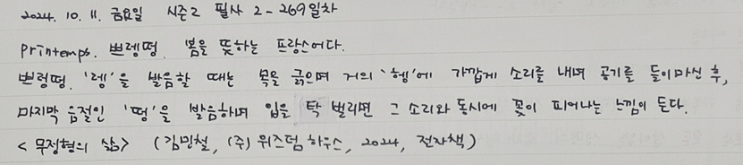 2024. 10. 11. 금요일 시즌2 필사 2-269일차
Printemps. 쁘렝떵. 봄을 뜻하는 프랑스어다.
쁘렝떵. '렝'을 발음할 때는 목을 긁으며 거의 '헹'에 가깝게 소리를 내며 공기를 들이마신 후,
마지막 음절인 '떵'을 발음하며 입을 탁 벌리면 그 소리와 동시에 꽃이 피어나는 느낌이 든다.
<무정형의 삶> (김민철, (주) 위즈덤하우스, 2024, 전자책)